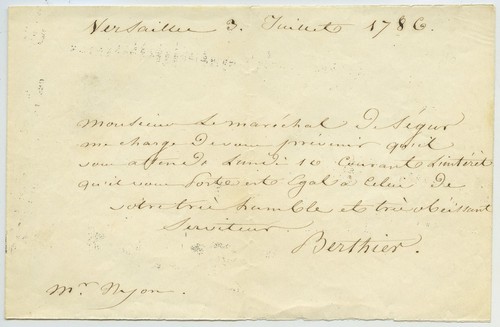 Versailles 3. Juillet 1786.
Monsieur Le maréchal De Ségur
me charge De vous prévenir qu'il
vous attend Lundi 10 Courant L'intérêt
qu'il vous Porte est Egal à Celui de
votre très humble et très obéissant
Serviteur.
Berthier.
Mr. Nyon.